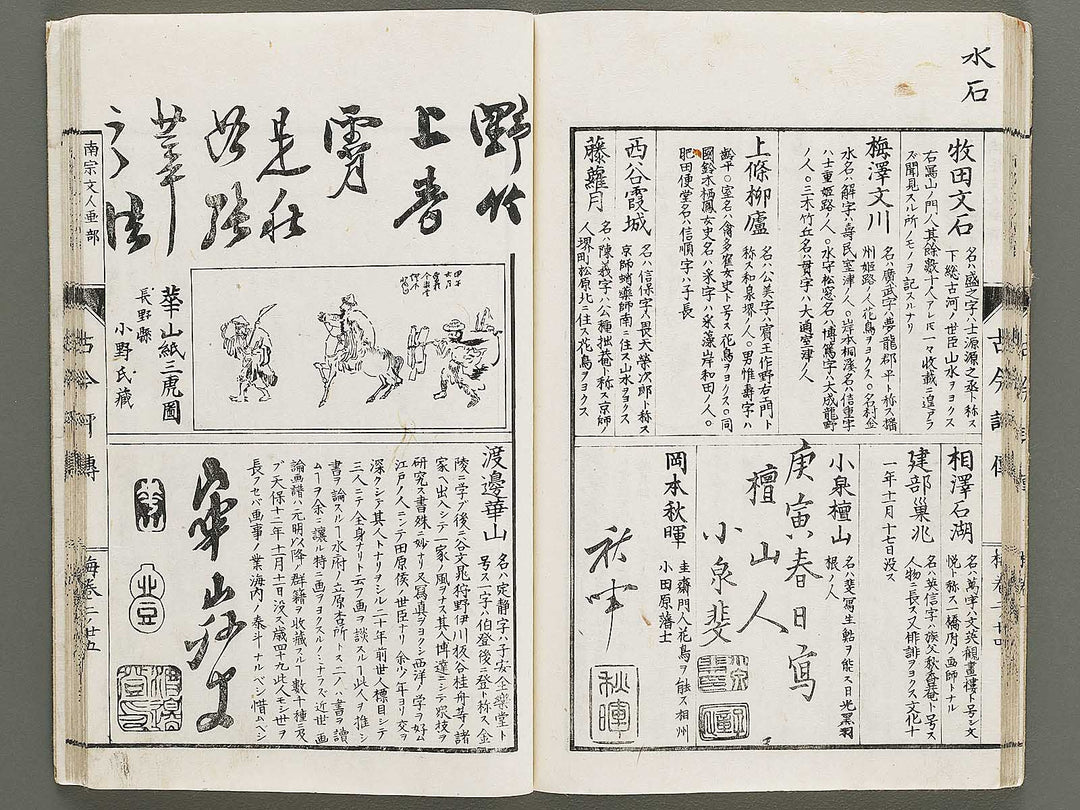 水石
牧田文石
名ハ盛之字ハ士源源之丞ト称ス
下総古河ノ世臣山水ヲヨクス
右罵山ノ門人其餘數十人アレ𪜈一々收載ニ遑アラ
ズ聞見スル所ノモノヲ記スルナリ
梅澤文川
名ハ廣武字ハ夢龍郡平ト称ス播
州姫路ノ人花鳥ヲヨクス○名村金
水名ハ解字ハ壽民室津ノ人○岸本桐淺名ハ信重字
ハ士重姫路ノ人○水守松窓名ハ博篤字ハ大成龍野
ノ人○三木竹丘名ハ貫字ハ大通室津ノ人
上條柳廬
名ハ公美字ハ寶王作野右エ門ト
称ス和泉堺ノ人○男惟壽字ハ
齡平○室名ハ禽多窠女史ト号ス花鳥ヲヨクス○同
國鈴木栖鳳女史名ハ采字ハ采藻岸和田ノ人○
肥田便堂名ハ信順字ハ子長
西谷霞城
名ハ信保字ハ畏天榮次郎ト称ス
京師蛸藥師南ニ住ス山水ヲヨクス
藤蘿月
名ハ陳義字ハ公種拙菴ト称ス京師ノ
人堺町松原北ニ住ス花鳥ヲヨクス
相澤石湖
名ハ萬字ハ文英觀畫樓ト号シ文
悦ト称ス一橋府ノ画師トナル
建部巢兆
名ハ英信字ハ族父秋香菴ト号ス
人物ニ長ス又俳諧ヲヨクス文化十
一年十一月十七日没ス
小泉檀山
名ハ斐寫生動ヲ能ス日光黒羽
根ノ人
庚寅春日寫
檀山人
小泉斐
岡本秋暉
圭齋門人花鳥ヲ能ス相州
小田原藩士
秋暉
秋暉
古今
梅卷二ノ廿四
野竹
上青
霄
南宗文人画部
華山紙三虎圖
長野縣
小野氏藏
渡邊華山
名ハ定静字ハ子安全樂堂ト
号ス一字ハ伯登後ニ登ト称ス金
陵ニ学ブ後ニ谷文兆狩野伊川板谷桂舟等ノ諸
家ヘ出入シテ一家ノ風ヲナス其人博達ニシテ衆技ヲ
研究ス書殊ニ妙ナリ又寫真ヲヨクシ西洋ノ学ヲ好ム
江戸ノ人ニシテ田原侯ノ世臣ナリ余少年ヨリ交ヲ
深クシテ其人トナリヲシル二十年前世人標目シテ
三人ニテ全身ナリト云フ画ヲ談スルハ此人ヲ推シ
書ヲ論スルハ水府ノ立原杏所トス二人ハ書ヲ讀
ムヿヲ余ニ讓ル特ニ画ヲヨクスルノミナラズ近世ノ画
論画譜ハ元明以降ノ群籍ヲ收藏スルヿ數十種ニ及
ブ天保十二年十月十一日没ス歳四十九此人モシ世ヲ
長フセバ画事ノ業海内ノ泰斗ナルベシ惜ムベシ
華山
古今
傳
梅卷二ノ廿五